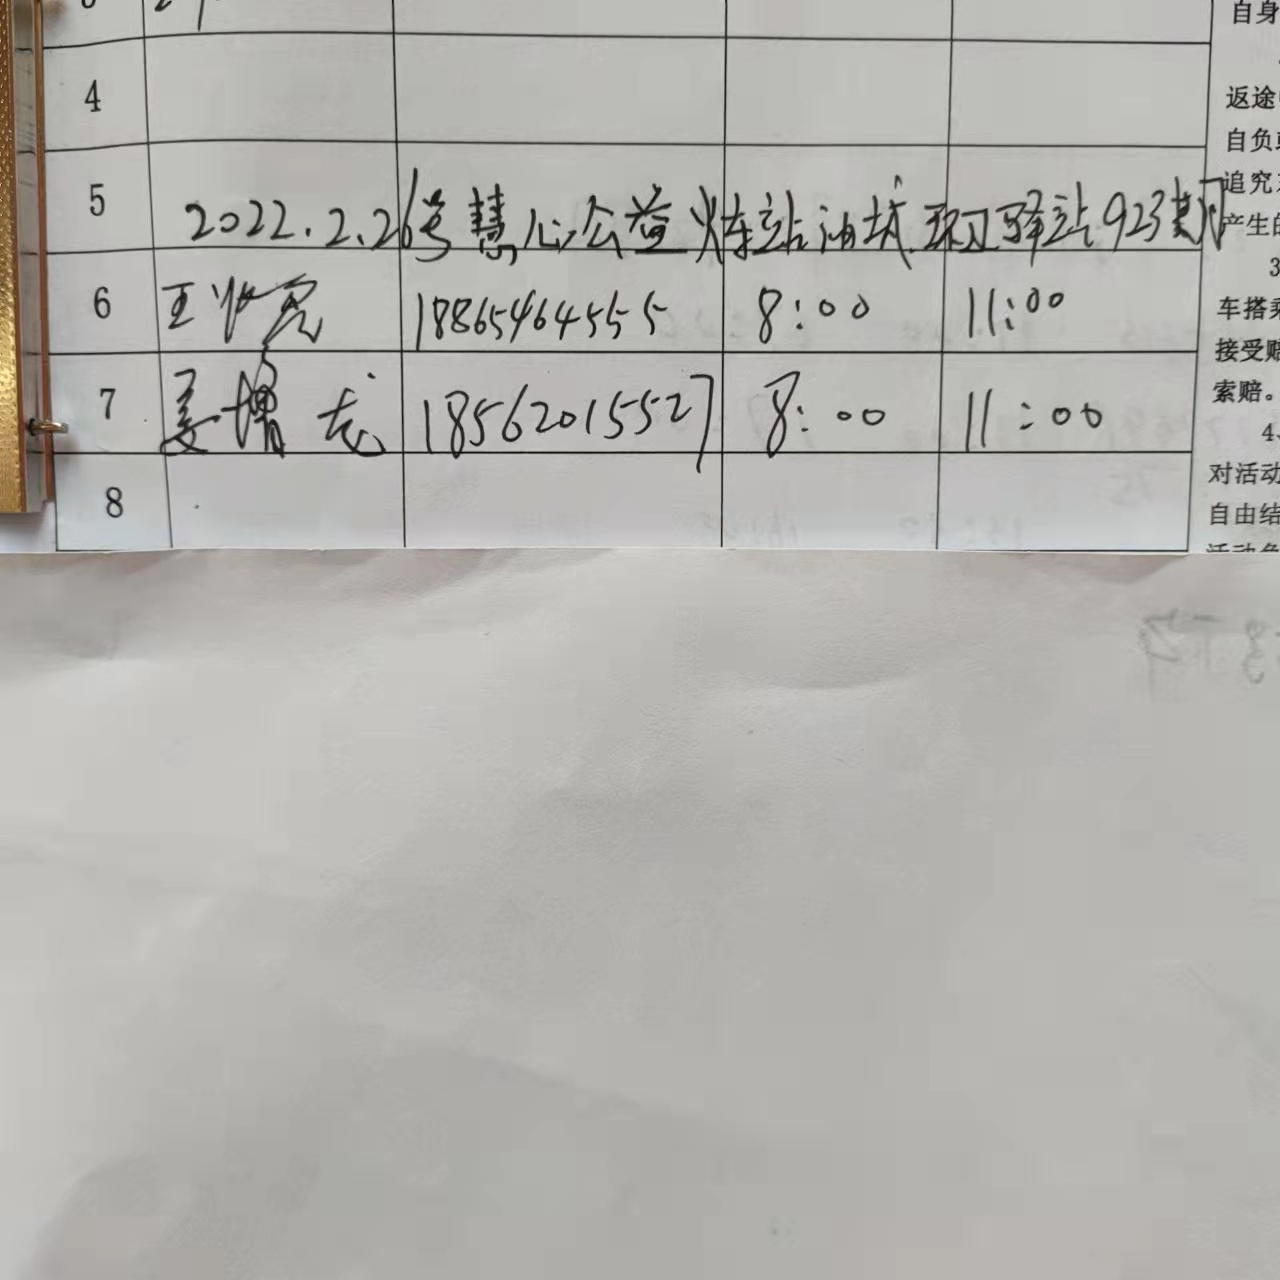 自身
4
返途
自负
5
追究
2022.2.26号慧心公益火车站油城环卫驿站923
产生的
3
6 王 18865464555 8:00 11:00
车搭乘
接受赔
7 姜增志 18562015527 8:00 11:00
索赔。
4、
对活动
8
自由结
活动